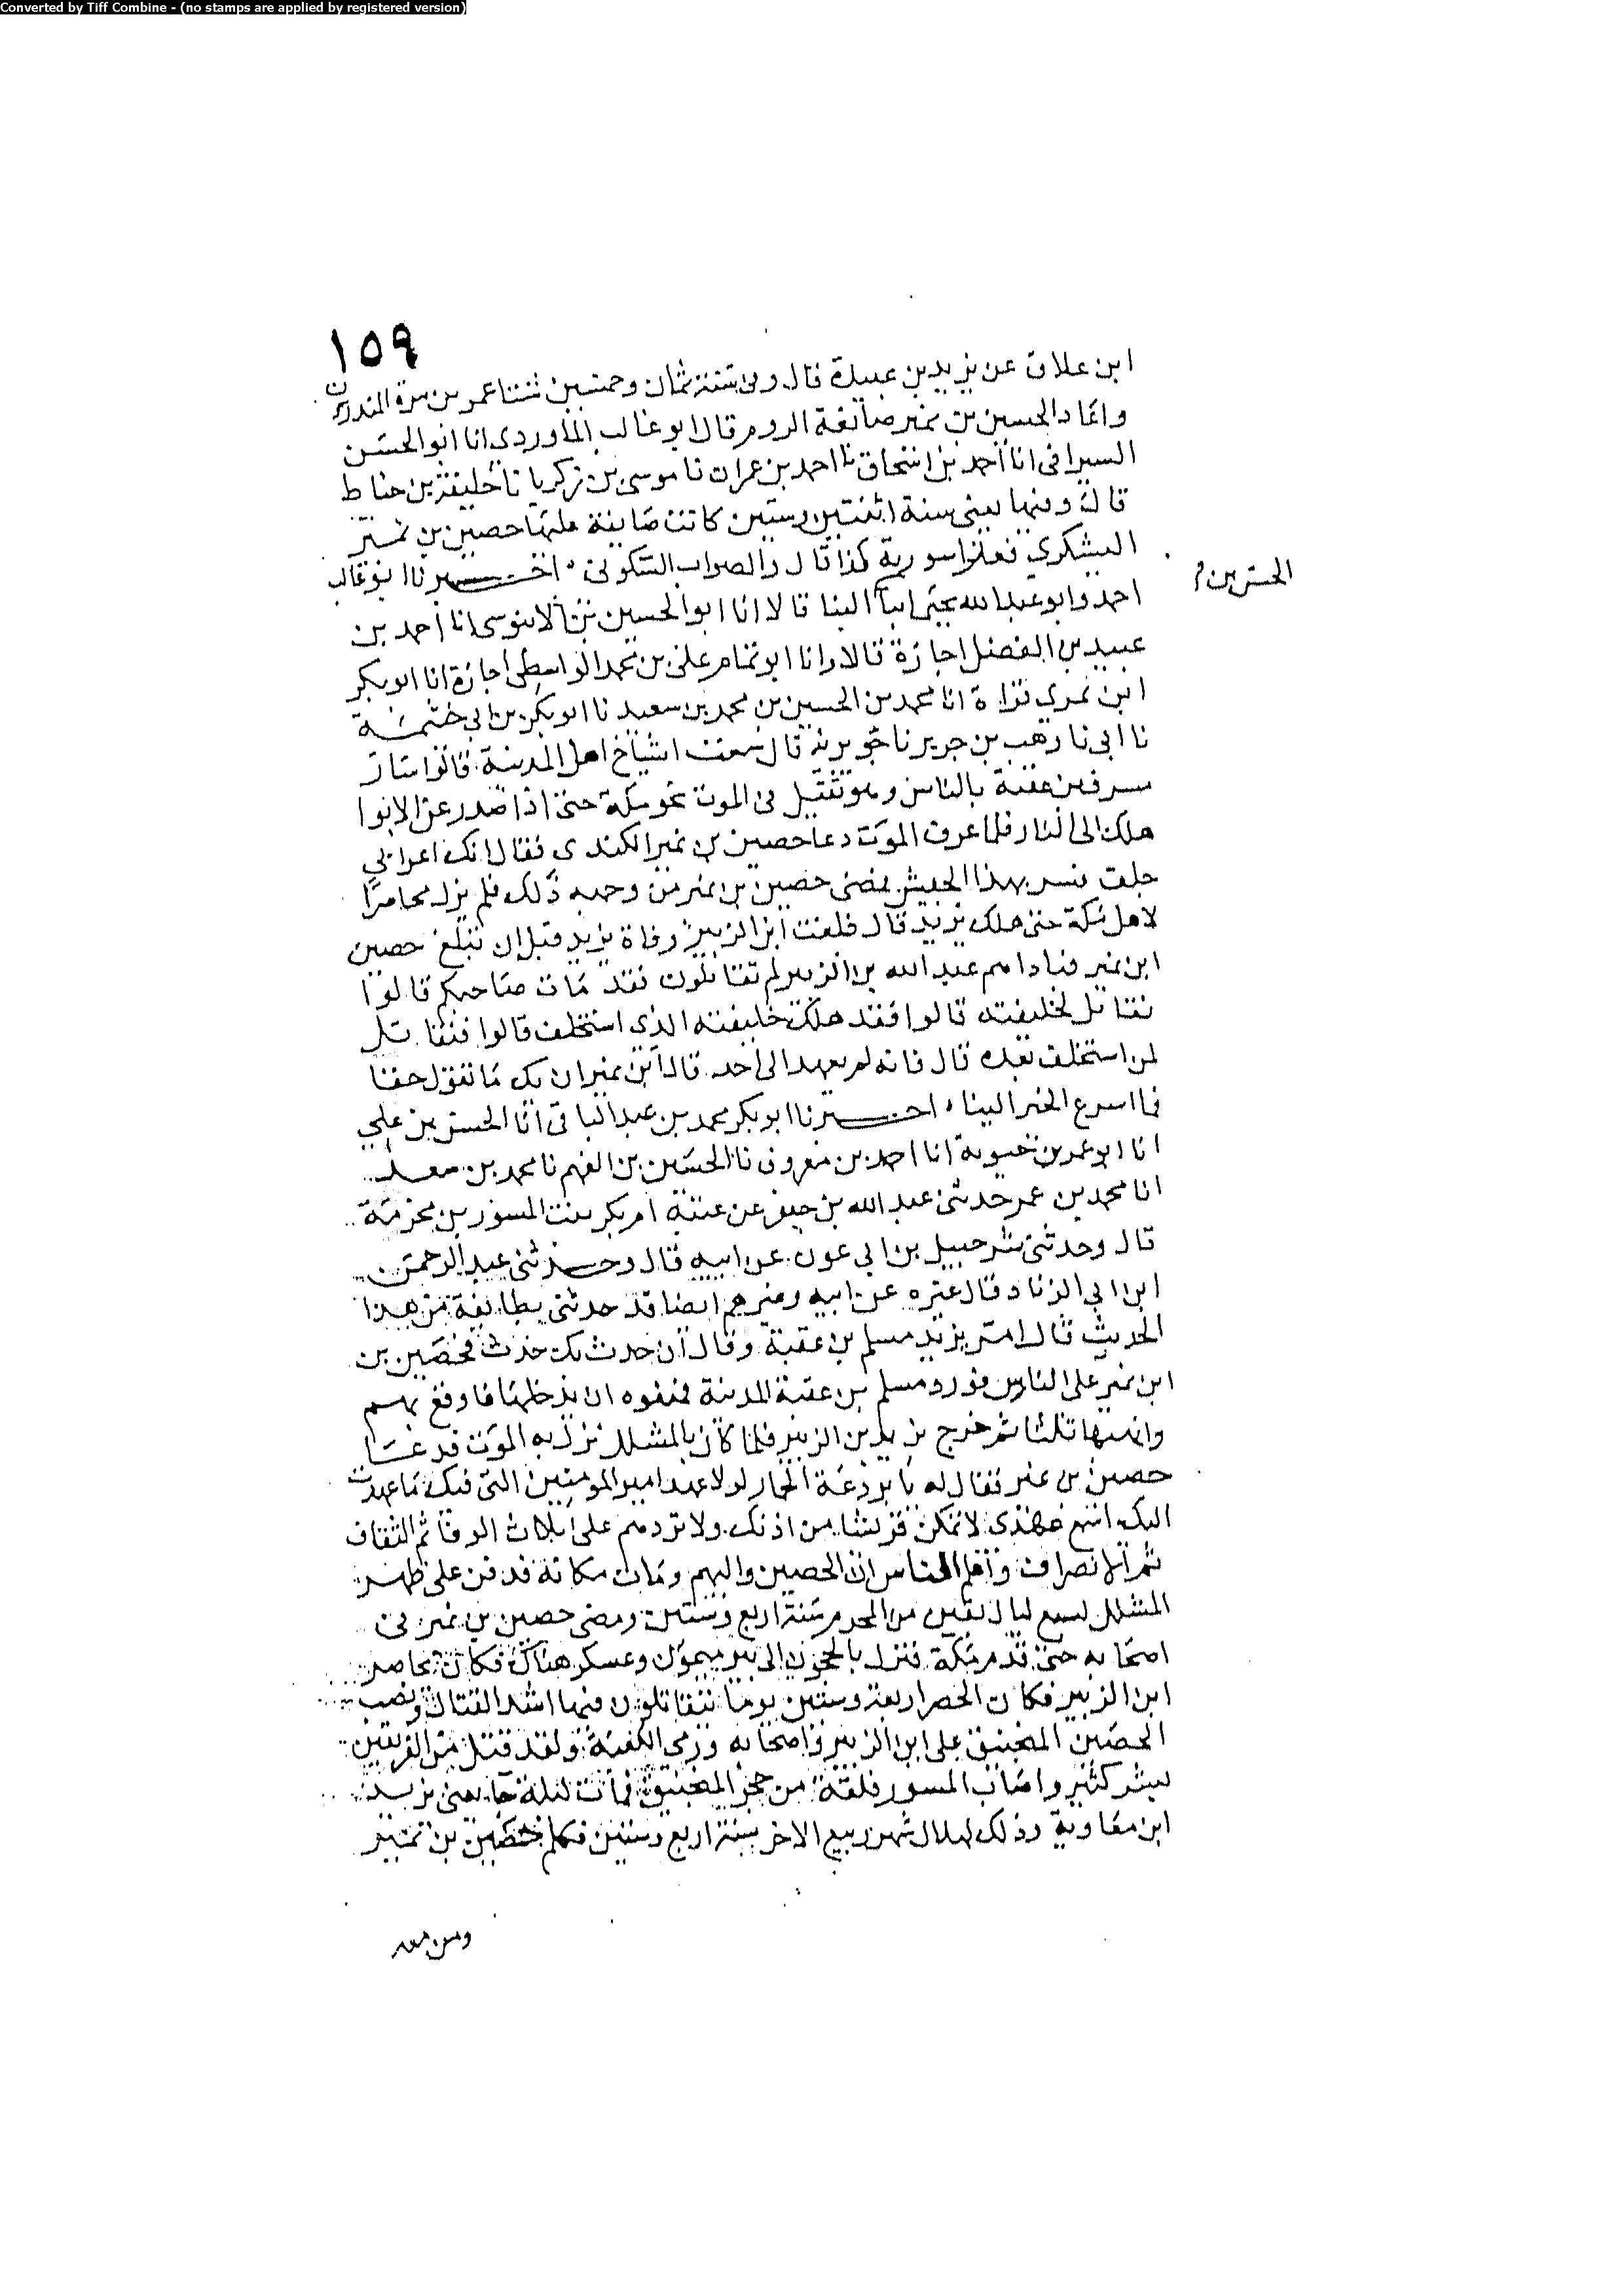 Converted by Tiff Combine - (no stamps are applied by registered version)
١٥٩
ابن علاق عن يزيد بن عبيدة قال وفي سنة ثمان وخمسين شتا عمرو بن مرة
وانما د الحسين بن نمير صائفة الروم قال ابو غالب الماوردي انا ابو الحسن
السيرافي انا أحمد بن اسحاق نا احمد بن عمران نا موسى بن زكريا نا خليفة بن خياط
قال وفيها يعني سنة اثنتين وستين كانت صايفة عليها حصين بن نمير
اليشكري فغزا سورية كذا قال والصواب السكوني اخبرنا ابو غالب
الحسن بن
احمد وابو عبد الله يحيى ابنا البنا قالا انا ابو الحسين بن الابنوسى انا أحمد بن
عبيد بن الفضل اجازة قالا وانا ابو تمام علي بن محمد الواسطي اجازة انا ابو بكر
ابن بمرى قراة انا محمد بن الحسين بن محمد بن سعيد نا ابو بكر بن ابي خيثمة
نا ابي نا وهب بن جرير نا جويرية قال سمعت اشياخ اهل المدينة قالوا سار
مسرف بن عقبة بالناس وهو ثقيل في الموت نحو مكة حتى اذا صدر عن الابوا
هلك الى النار فلما عرف الموت دعا حصين بن نمير الكندى فقال انك اعرابي
جلف فسر بهذا الجيش فمضى حصين بن نمير من وجهه ذلك فلم يزل محاصرا
لاهل مكة حتى هلك يزيد قال فبلغت ابن الزبير وفاة يزيد قبل ان تبلغ حصين
ابن نمير فناداهم عبد الله بن الزبير لم تقاتلون فقد مات صاحبكم قالوا
نقاتل لخليفته قالوا فقد هلك خليفته الذي استخلف قالوا فنقاتل
لمن استخلف بعده قال فانه لم يعهد الى أحد قال ابن نمير ان يك ما تقول حقا
فما اسرع الخبر الينا اخبرنا ابو بكر محمد بن عبد الباقي انا الحسن بن علي
انا ابو عمر بن حيوية انا احمد بن معروف نا الحسين بن الفهم نا محمد بن سعد
انا محمد بن عمر حدثني عبد الله بن جعفر عن عمته ام بكر بنت المسور بن مخرمة
قال وحدثني شرحبيل بن ابي عون عن ابيه قال وحدثني عبد الرحمن
ابن ابي الزناد وقال غيره عن ابيه وغيرهم ايضا قد حدثني بطايفة من هذا
الحديث قال امر يزيد مسلم بن عقبة وقال ان حدث بك حدث فحصين بن
ابن نمير على الناس فورد مسلم بن عقبة المدينة فمنعوه ان يدخلها فاوقع بهم
وانهبها ثلثا ثم خرج يريد بن الزبير فلما كان بالمشلل نزل به الموت فدعا
حصين بن نمير فقال له يا بردعة الحمار لولا عهد امير المومنين التي فيك ما عهدت
اليك اسمع عهدى لا تمكن قريشا من اذنك ولا تزدهم على ثلاث الوقا ثم الثقاف
ثم الانصراف واعلم الناس ان الحصين واليهم ومات مكانه فدفن على ظهر
المشلل لسبع ليال بقين من المحرم سنة اربع وستين ومضى حصين بن نمير في
اصحابه حتى قدم مكة فنزل بالحجون الى بير ميمون وعسكر هناك فكان يحاصر
ابن الزبير فكان الحصر اربعة وستين يوما تتقاتلون فيها اشد القتال ونصب
الحصين المنجنيق على ابن الزبير واصحابه ورمى الكعبة ولقد قتل من الفريقين
بشر كثير واصاب المسور فلقة من حجر المنجنيق فمات ليلة جا نعي يزيد
ابن معاوية وذلك لهلال شهر ربيع الاخر سنة اربع وستين فكلم حصين بن نمير
ومن معه